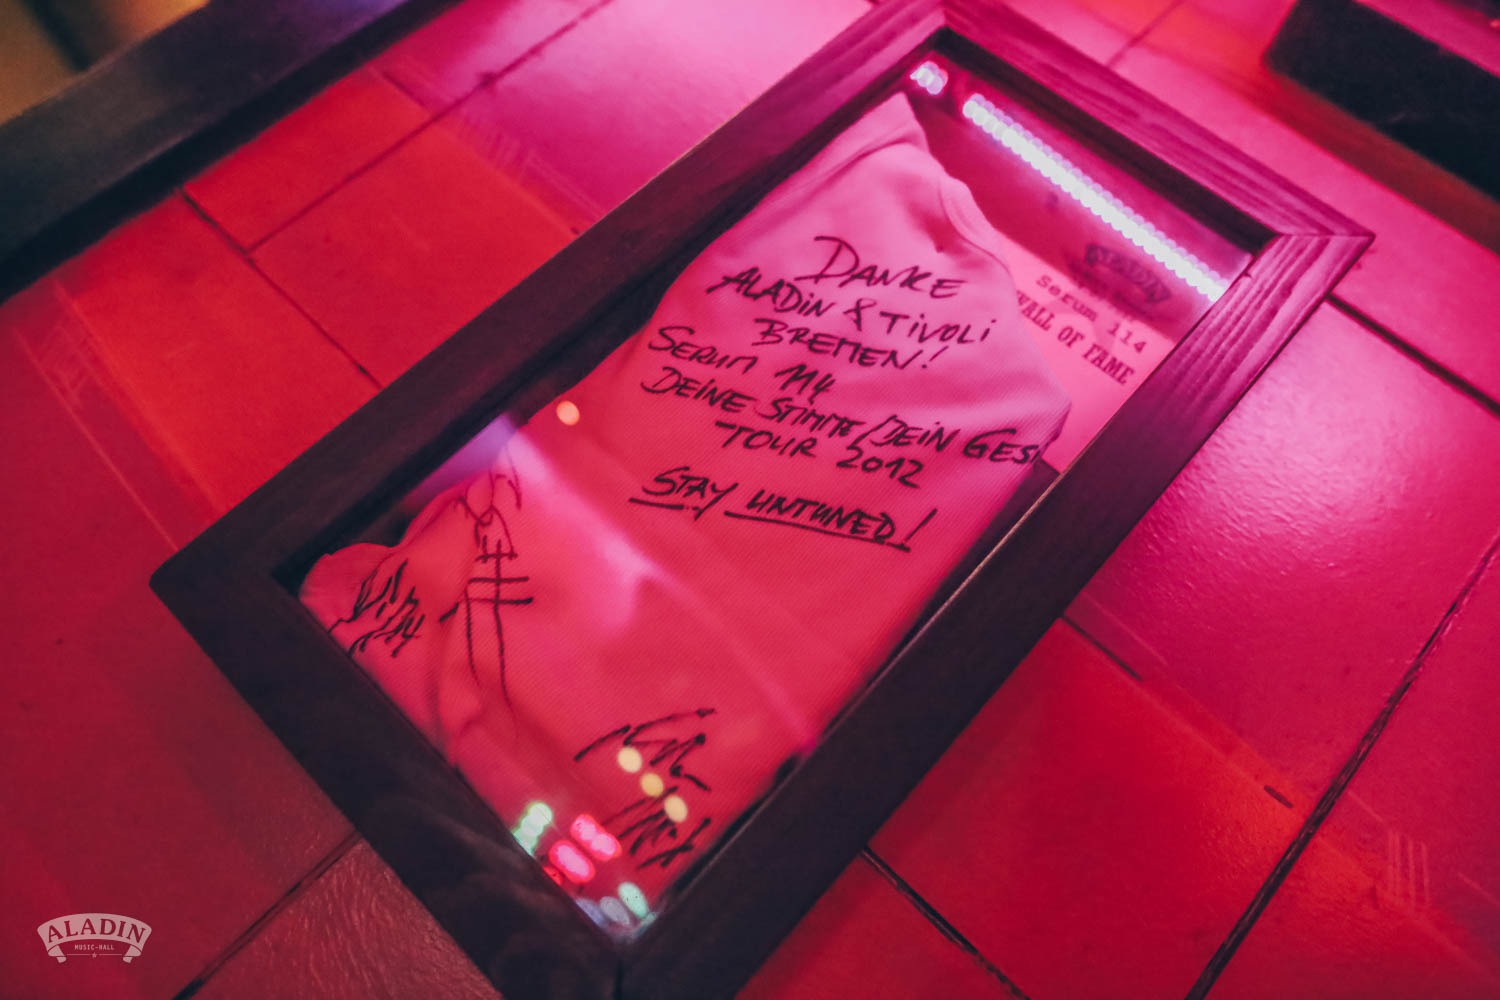 DANKE
ALADIN & TIVOLI
BREMEN!
SERUM 114
DEINE STIMME/DEIN GES
TOUR 2012
STAY UNTUNED!
ALADIN
Serum 114
WALL OF FAME
ALADIN
MUSIC-HALL